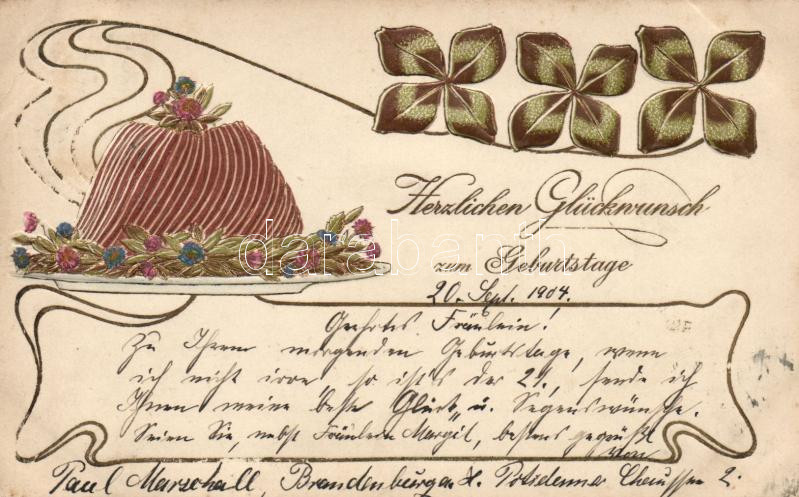 Herzlichen Glückwunsch
zum Geburtstage
darabanth
20. Sept. 1904.
Geehrtes Fräulein!
Zu Ihrem morgenden Geburtstage, wenn
ich nicht irre, so ist's der 21., sende ich
Ihnen meine beste Glück u. Segenswünsche.
Seien Sie, nebst Fräulein Margit, bestens gegrüßt
von
Paul Marschall, Brandenburg a. H. Potsdamer Chaussee 2.